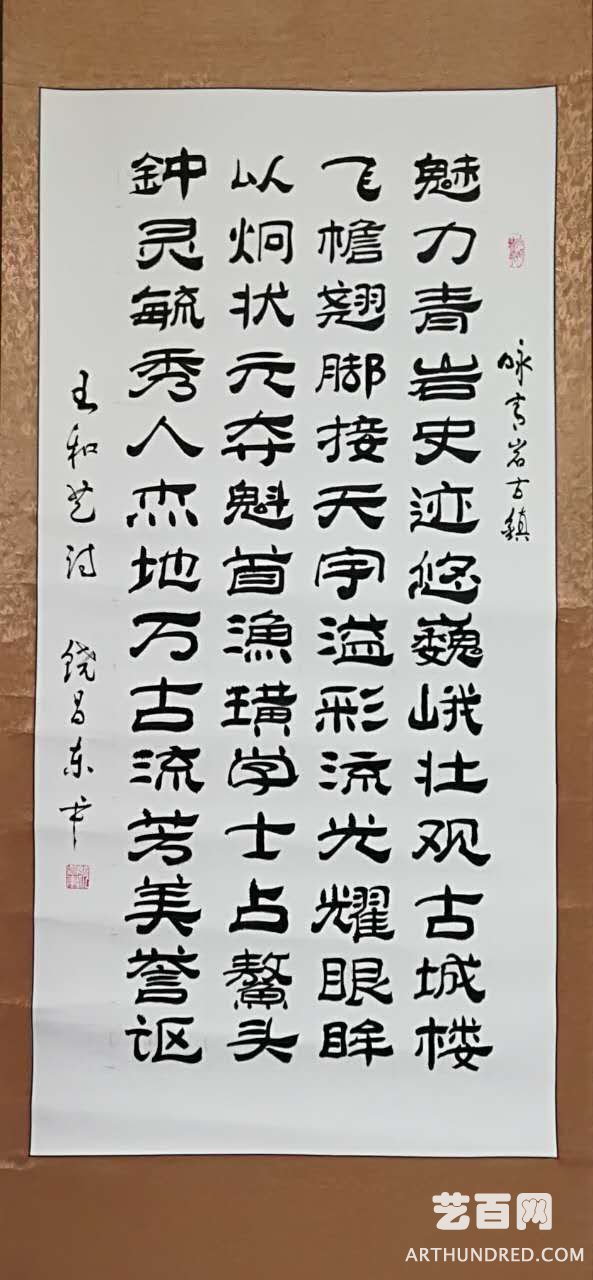 咏青岩古鎮
魅力青岩史迹悠巍峨壮观古城楼
飞檐翘脚接天宇溢彩流光耀眼眸
以炯状元夺魁首渔璜学士占鳌头
鈡灵毓秀人杰地万古流芳美誉讴
王和艺诗 饶昌东书
艺百网
ARTHUNDRED.COM